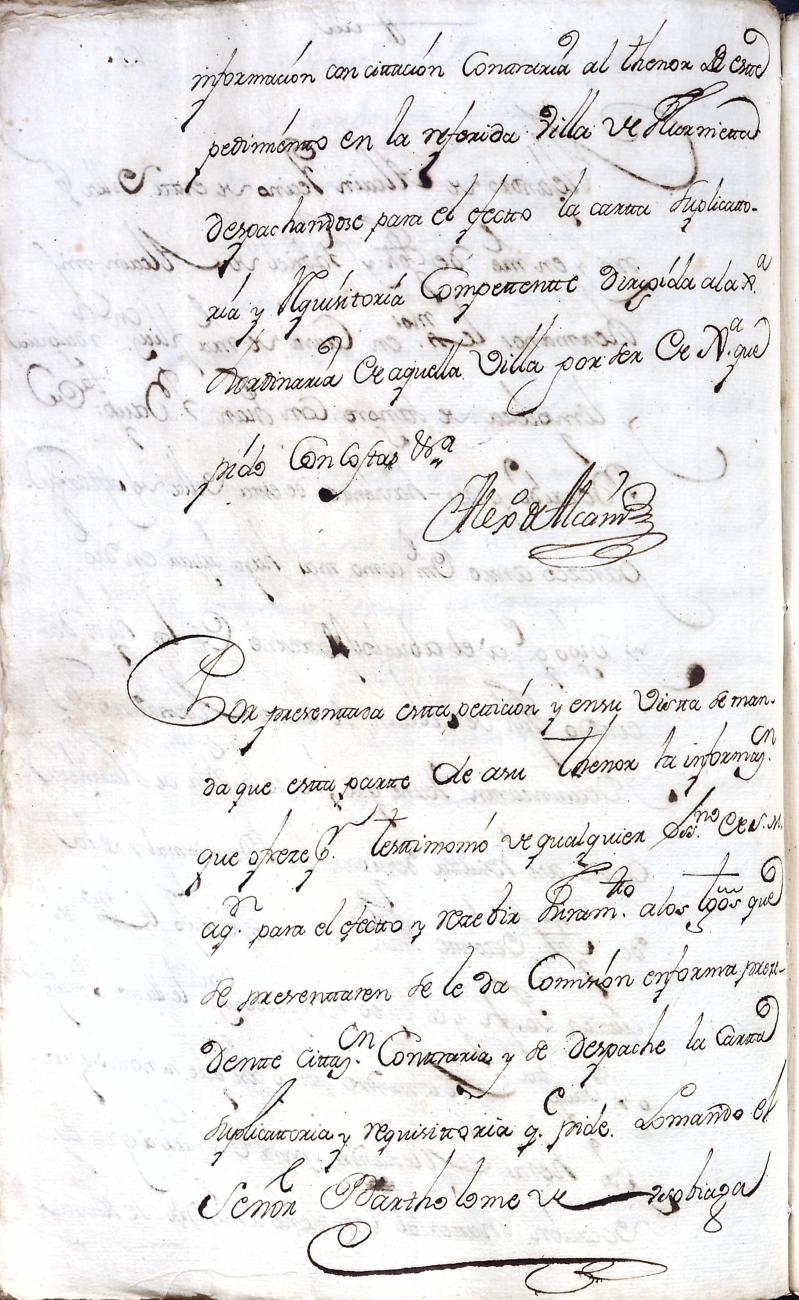 información con cittación Contraria al thenor de este
pedimento en la referida Villa de
despachandose para el efecto la cartta Suplicatto-
ria y Requisitoria Competentte Dirigida a la Xª
hordinaria de aquella Villa por ser de Xª que
pido Con Costas &ª
Alexº de
Por presentada estta petición y en su Vista se man-
da que estta parte de a su thenor la informazn
que ofreze pr testtimonio de qualquier Ssno de S.M.
a qn para el efecto y rezebir Juramtto a los tgos que
se presenttaren se le da Comisión en forma preze-
dentte cittazn Conttraria y se despache la Cartta
Suplicattoria y requisittoria q.e pide. Lo mando el
Señor Bartholome de